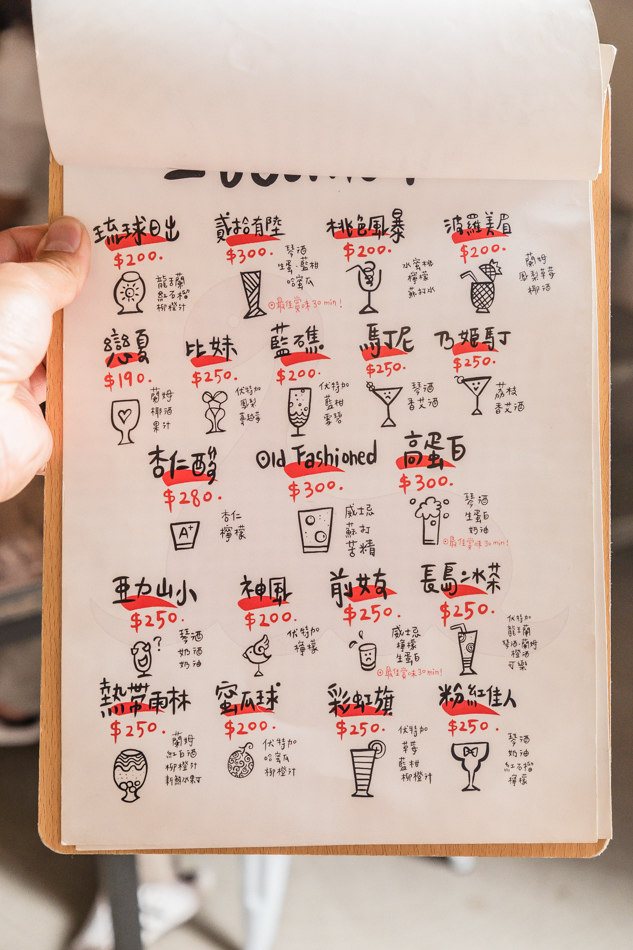 琉球日出
$200.
龍舌蘭
紅石榴
柳橙汁
貳拾有陸
$300.
琴酒
生蛋·藍柑
哈蜜瓜
最佳賞味30min!
桃色風暴
$200.
水蜜桃
檸檬
蘇打水
波羅美眉
$200.
蘭姆
鳳梨草莓
椰酒
戀夏
$190.
蘭姆
椰酒
果汁
比妹
$250.
伏特加
鳳梨
蔓越莓
藍礁
$200.
伏特加
藍柑
雪碧
馬丁尼
$250.
琴酒
香艾酒
乃姬馬丁
$250.
荔枝
香艾酒
杏仁酸
$280.
A+
杏仁
檸檬
Old Fashioned
$300.
威士忌
蘇打
苦精
高蛋白
$300.
琴酒
生蛋白
奶油
最佳賞味30min!
亞力山小
$250.
?
琴酒
奶酒
奶油
神風
$200.
伏特加
檸檬
前女友
$250.
威士忌
檸檬
生蛋白
最佳賞味30min!
長島冰茶
$250.
伏特加
龍舌蘭
琴酒·蘭姆
橙酒
可樂
熱帶雨林
$250.
蘭姆
紅白酒
柳橙汁
新鮮水果丁
蜜瓜球
$200.
伏特加
哈蜜瓜
柳橙汁
彩虹旗
$250.
伏特加
草莓
藍柑
柳橙汁
粉紅佳人
$250.
琴酒
奶油
紅石榴
檸檬